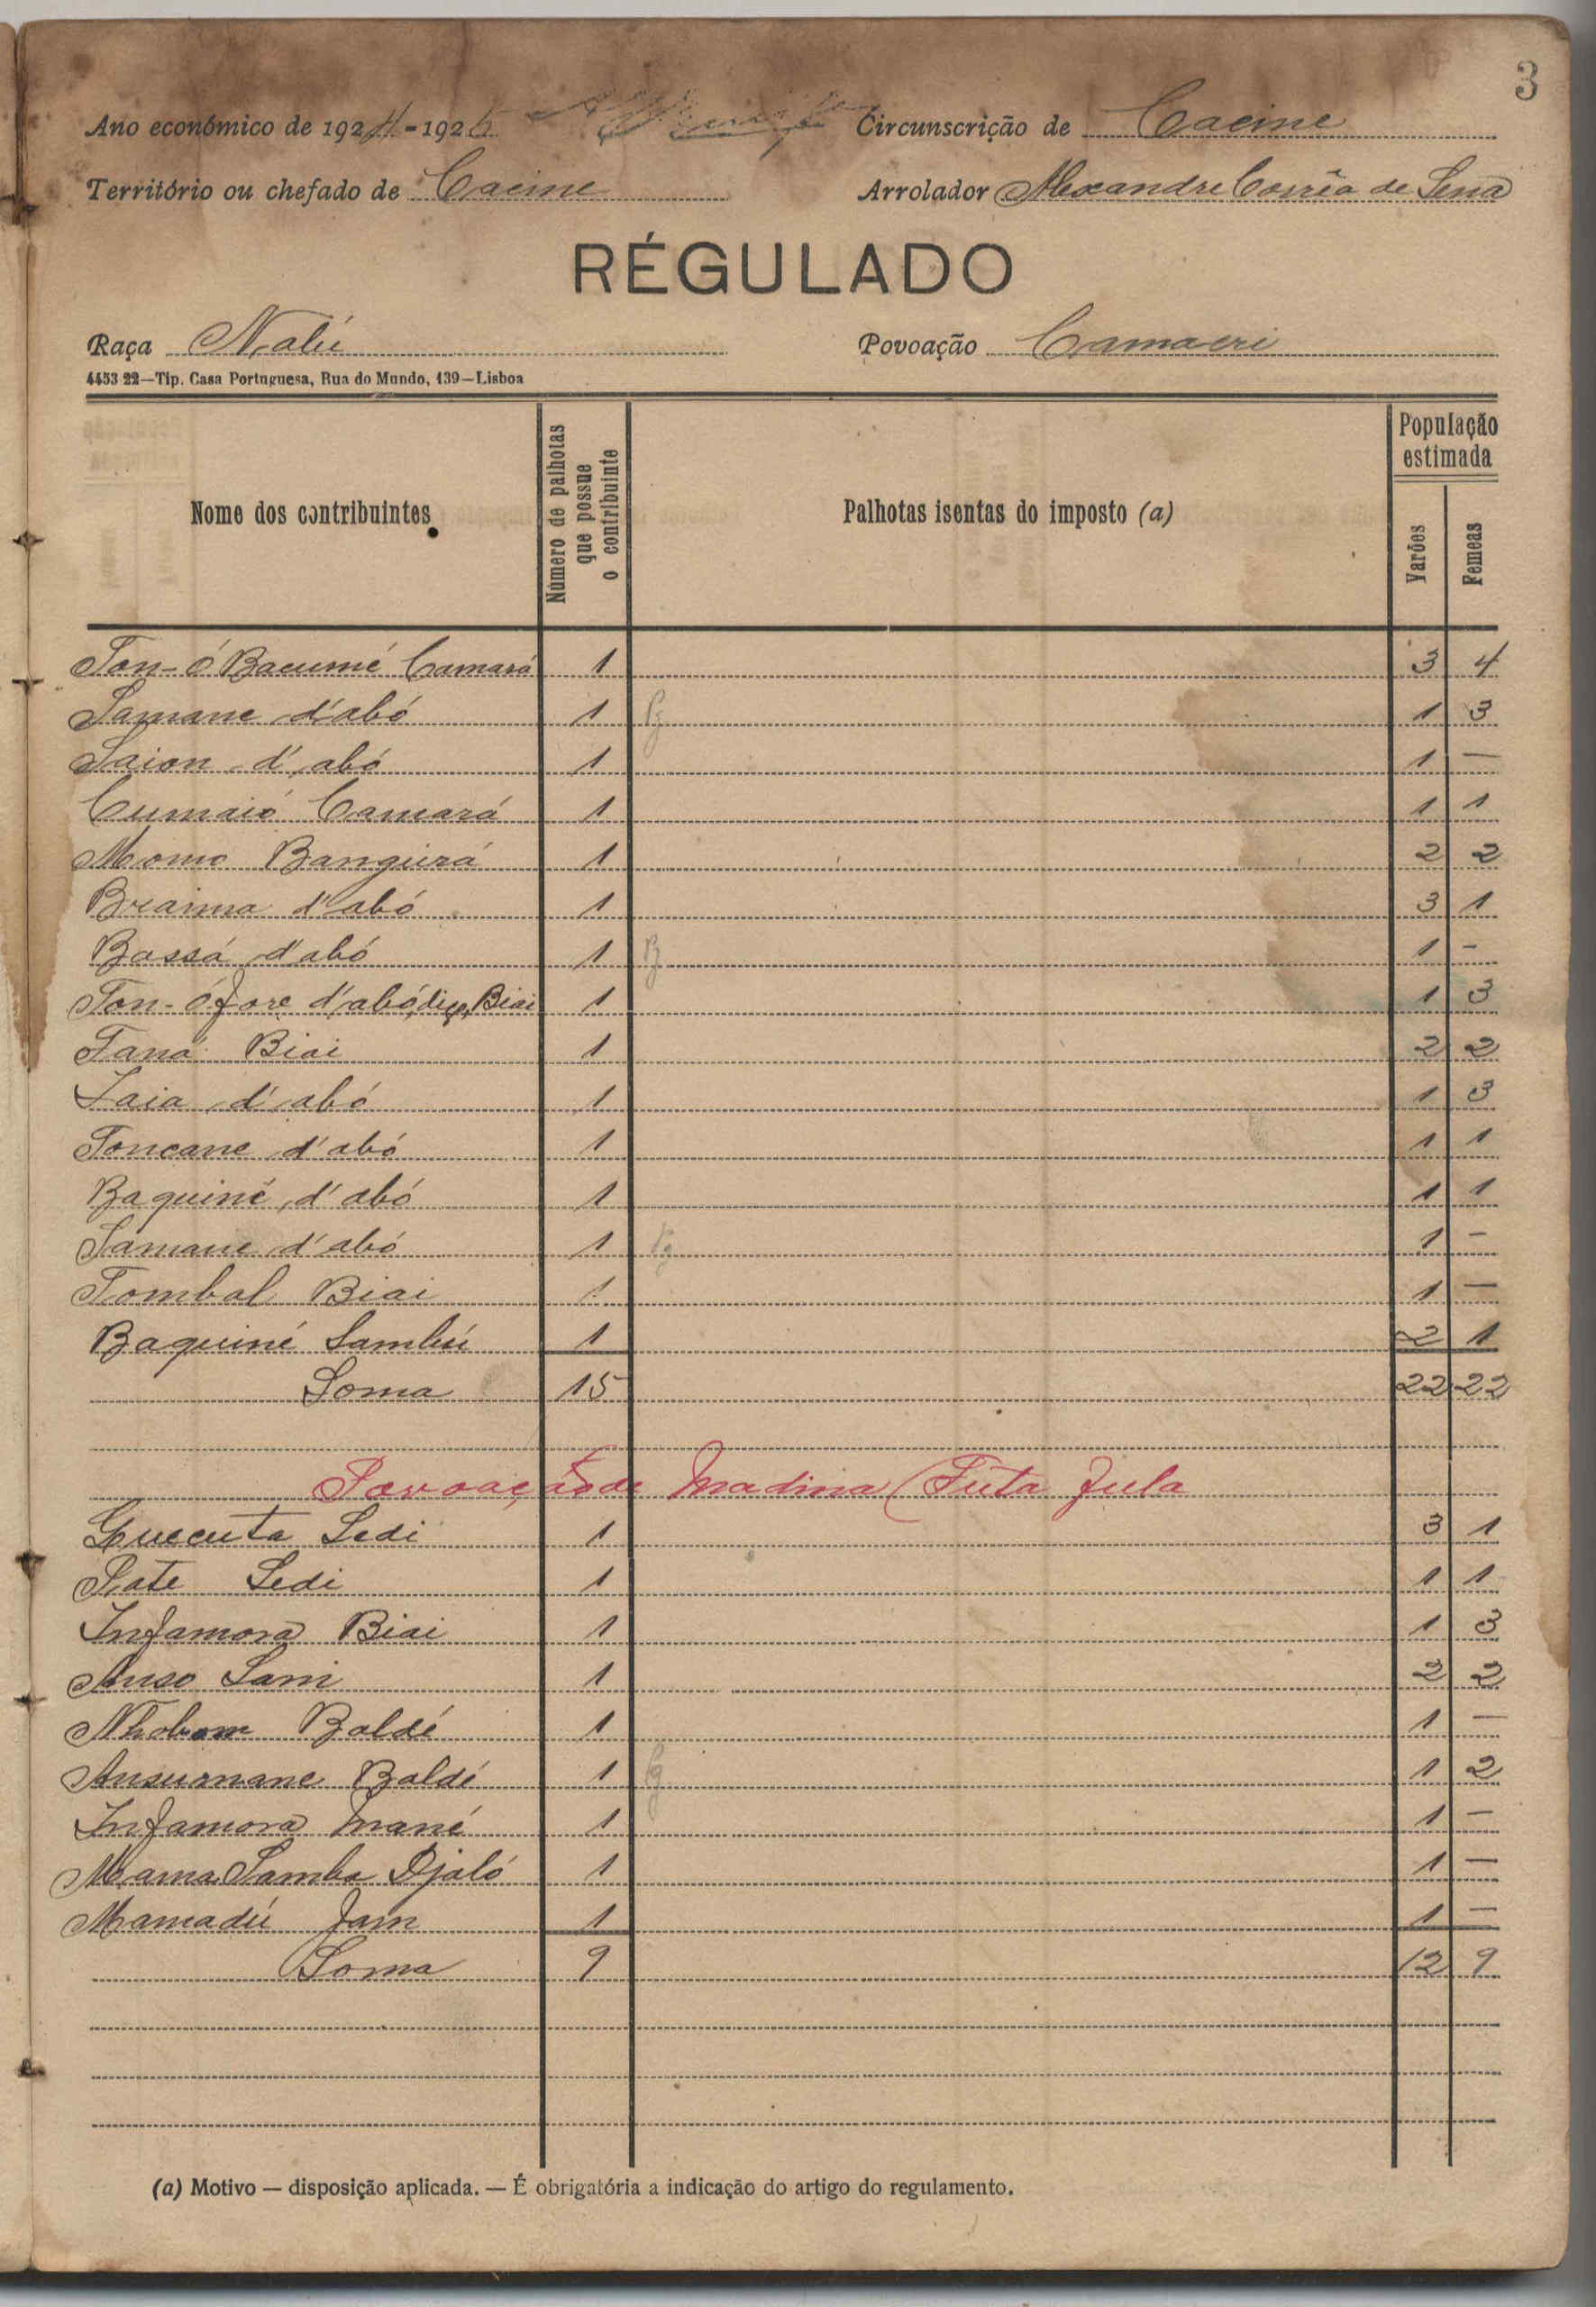 3
Ano económico de 1924-1925 Circunscrição de Cacine
Território ou chefado de Cacine Arrolador Alexandre Corrêa de Sena
RÉGULADO
Raça Nalú Povoação Camaeri
4453 22—Tip. Casa Portuguesa, Rua do Mundo, 139—Lisboa
Nome dos contribuintes Número de palhotas que possue o contribuinte Palhotas isentas do imposto (a) População estimada Varões Femeas
Ton-ó Bacumé Camará 1 3 4
Samane d'abó 1 1 3
Saion d'abó 1 1 —
Cumaió Camará 1 1 1
Momo Bangurá 1 2 2
Braima d'abó 1 3 1
Bassá d'abó 1 1 -
Ton-ó fore d'abó, digo, Biai 1 1 3
Taná Biai 1 2 2
Laia d'abó 1 1 3
Toncane d'abó 1 1 1
Baquiné d'abó 1 1 1
Samane d'abó 1 1 -
Tombal Biai 1 1 —
Baquiné Sambú 1 2 1
Soma 15 22 22
Povoação de Madina (Futa Fula
Quecuta Sedi 1 3 1
Pate Sedi 1 1 1
Infamora Biai 1 1 3
Anso Sani 1 2 2
Nhobom Baldé 1 1 —
Ansumane Baldé 1 1 2
Infamora Mané 1 1 —
Mama Samba Djaló 1 1 —
Mamadú Jam 1 1 —
Soma 9 12 9
(a) Motivo — disposição aplicada. — É obrigatória a indicação do artigo do regulamento.